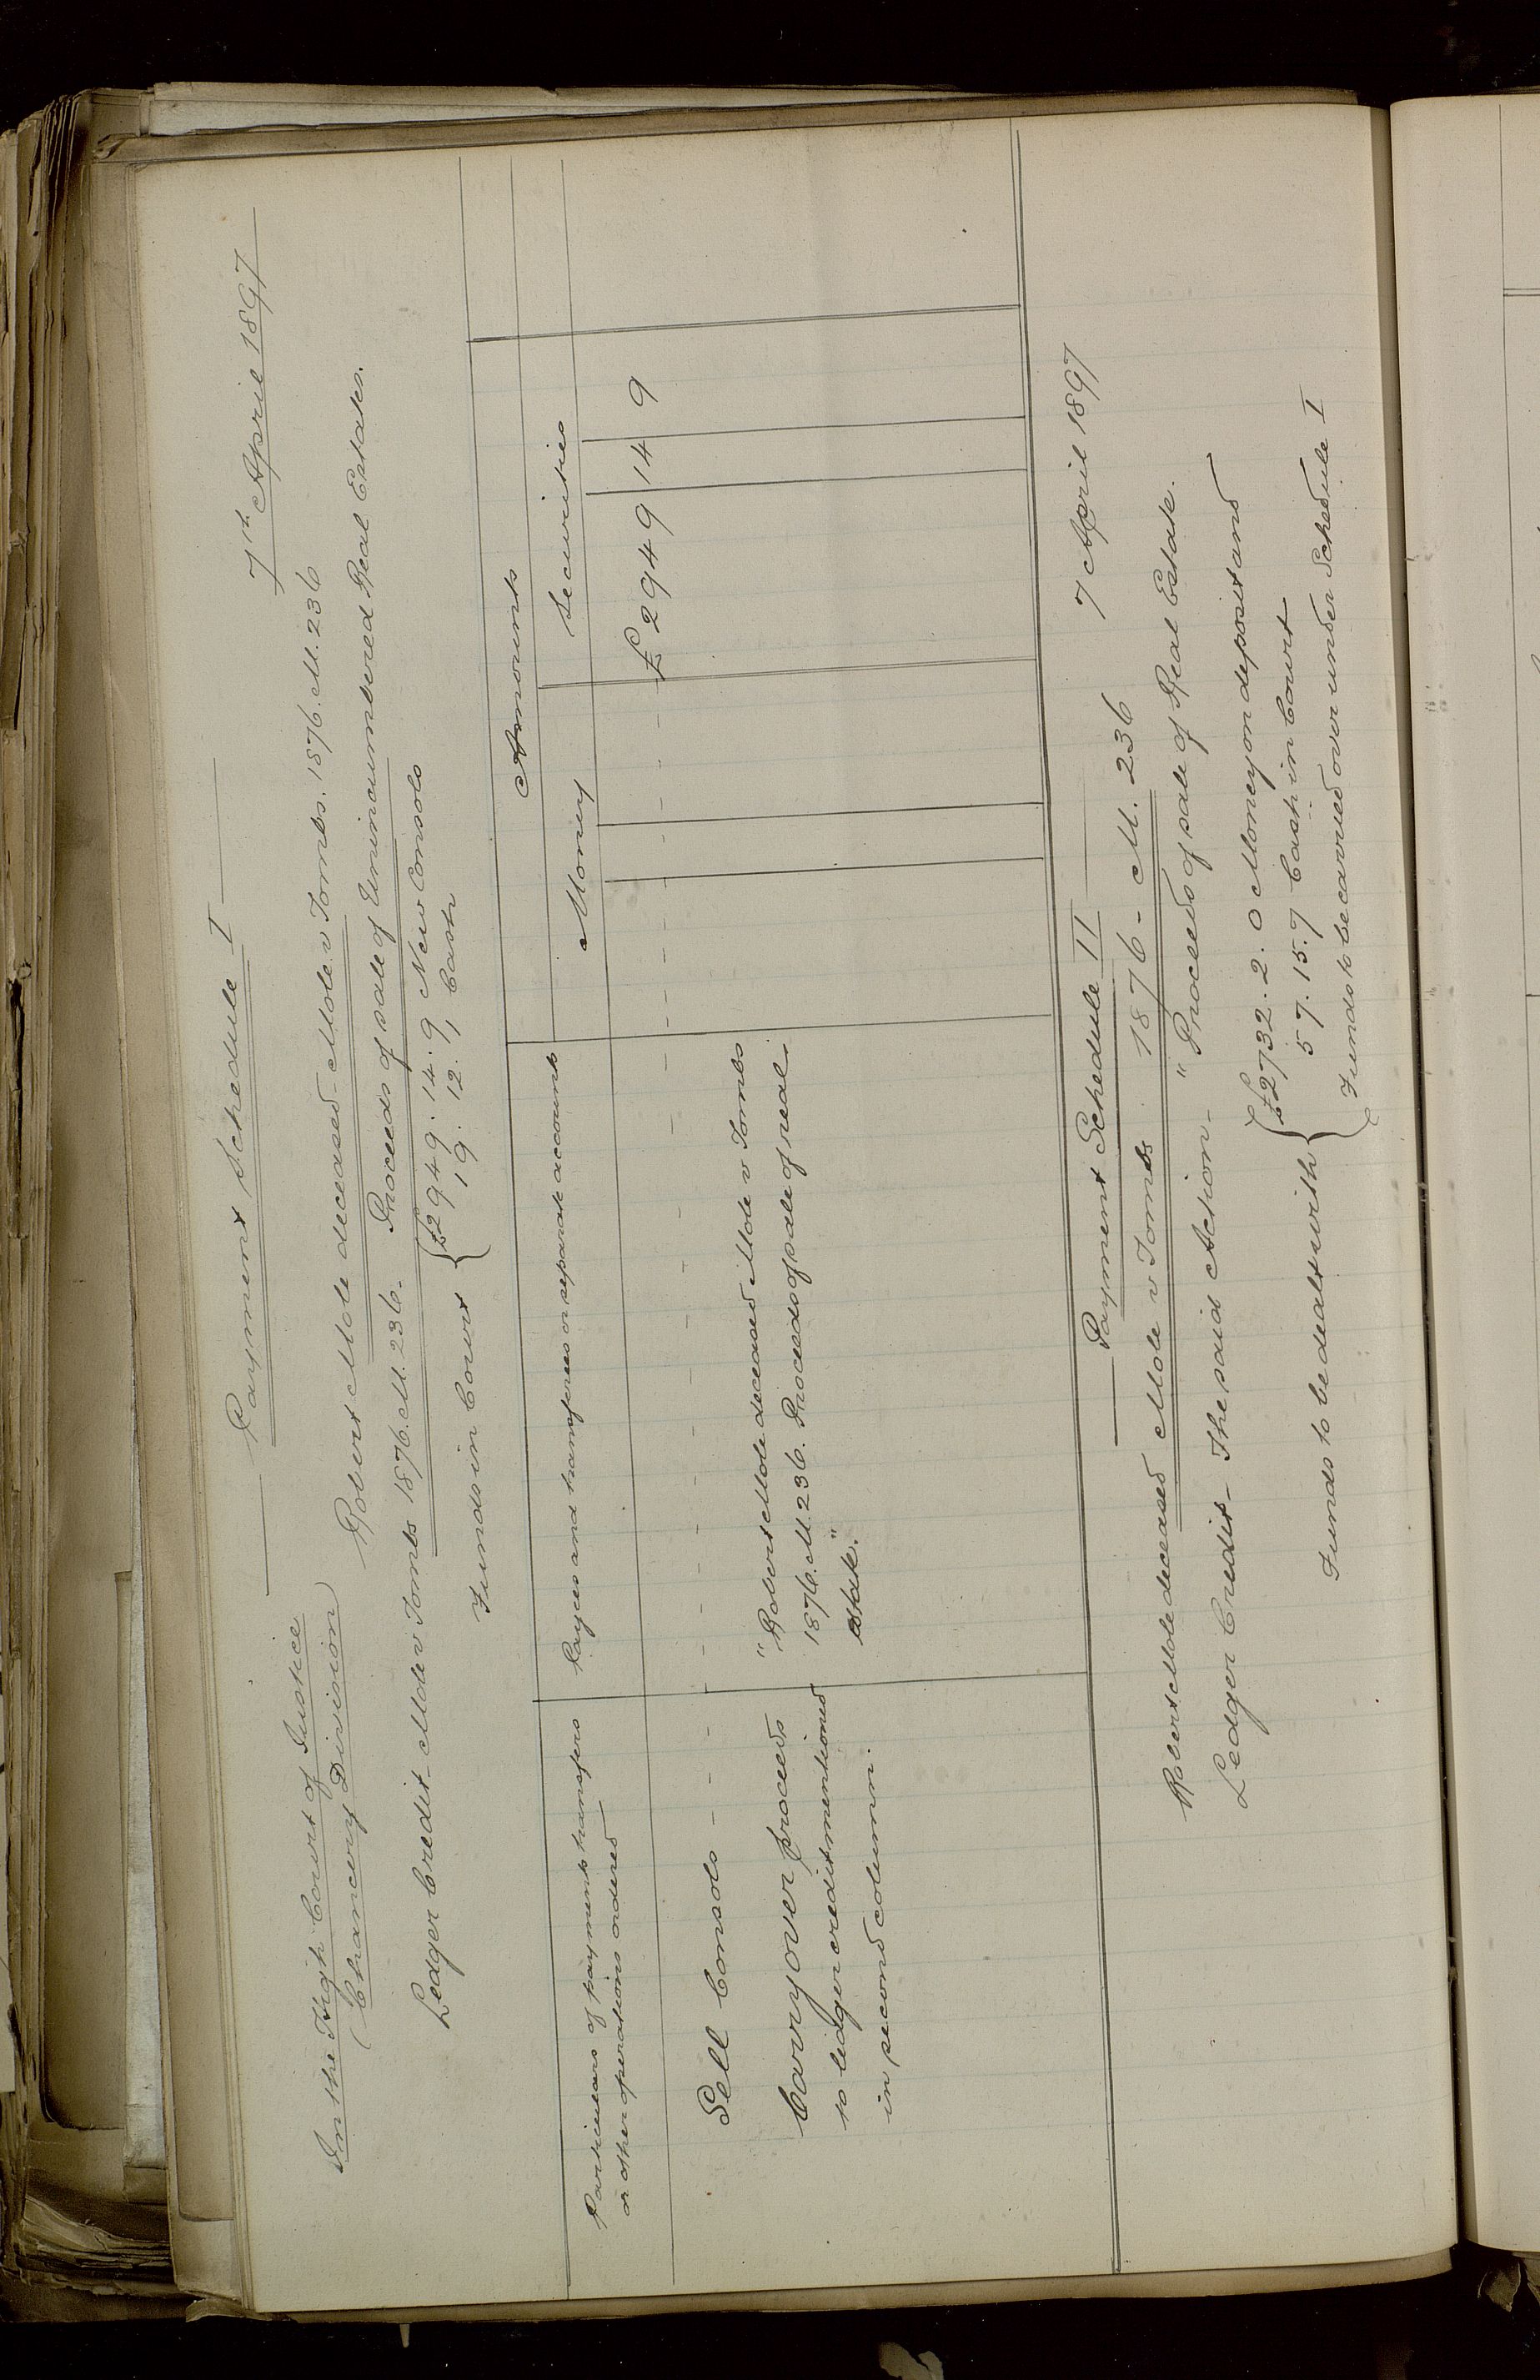 Payment Schedule I
7th April 1897
In the High Court of Justice
(Chancery Division)
Robert Mole deceased - Mole v Tombs. 1876. M. 236
Ledger Credit - Mole v Tombs 1876. M. 236. Proceeds of sale of Unincumbered Real Estates.
Funds in Court { £2949. 14. 9 New Consols
19. 12. 1, Cash
Particulars of payments transfers
or other operations ordered
Payees and transferees or separate accounts
Amounts
Money
Securities
Sell Consols - - - - - - - - - - - - - - £2949 14 9
Carry over proceeds
to ledger credit mentioned
in second column.
"Robert Mole deceased Mole v Tombs
1876. M. 236. Proceeds of sale of real
estate."
Payment Schedule II
7 April 1897
Robert Mole deceased Mole v Tombs 1876 - M. 236
Ledger Credit - The said Action - "Proceeds of sale of Real Estate.
Funds to be dealt with { £2732. 2. 0 Money on deposit and
57. 15. 7 Cash in Court
Funds to be carried over under Schedule I